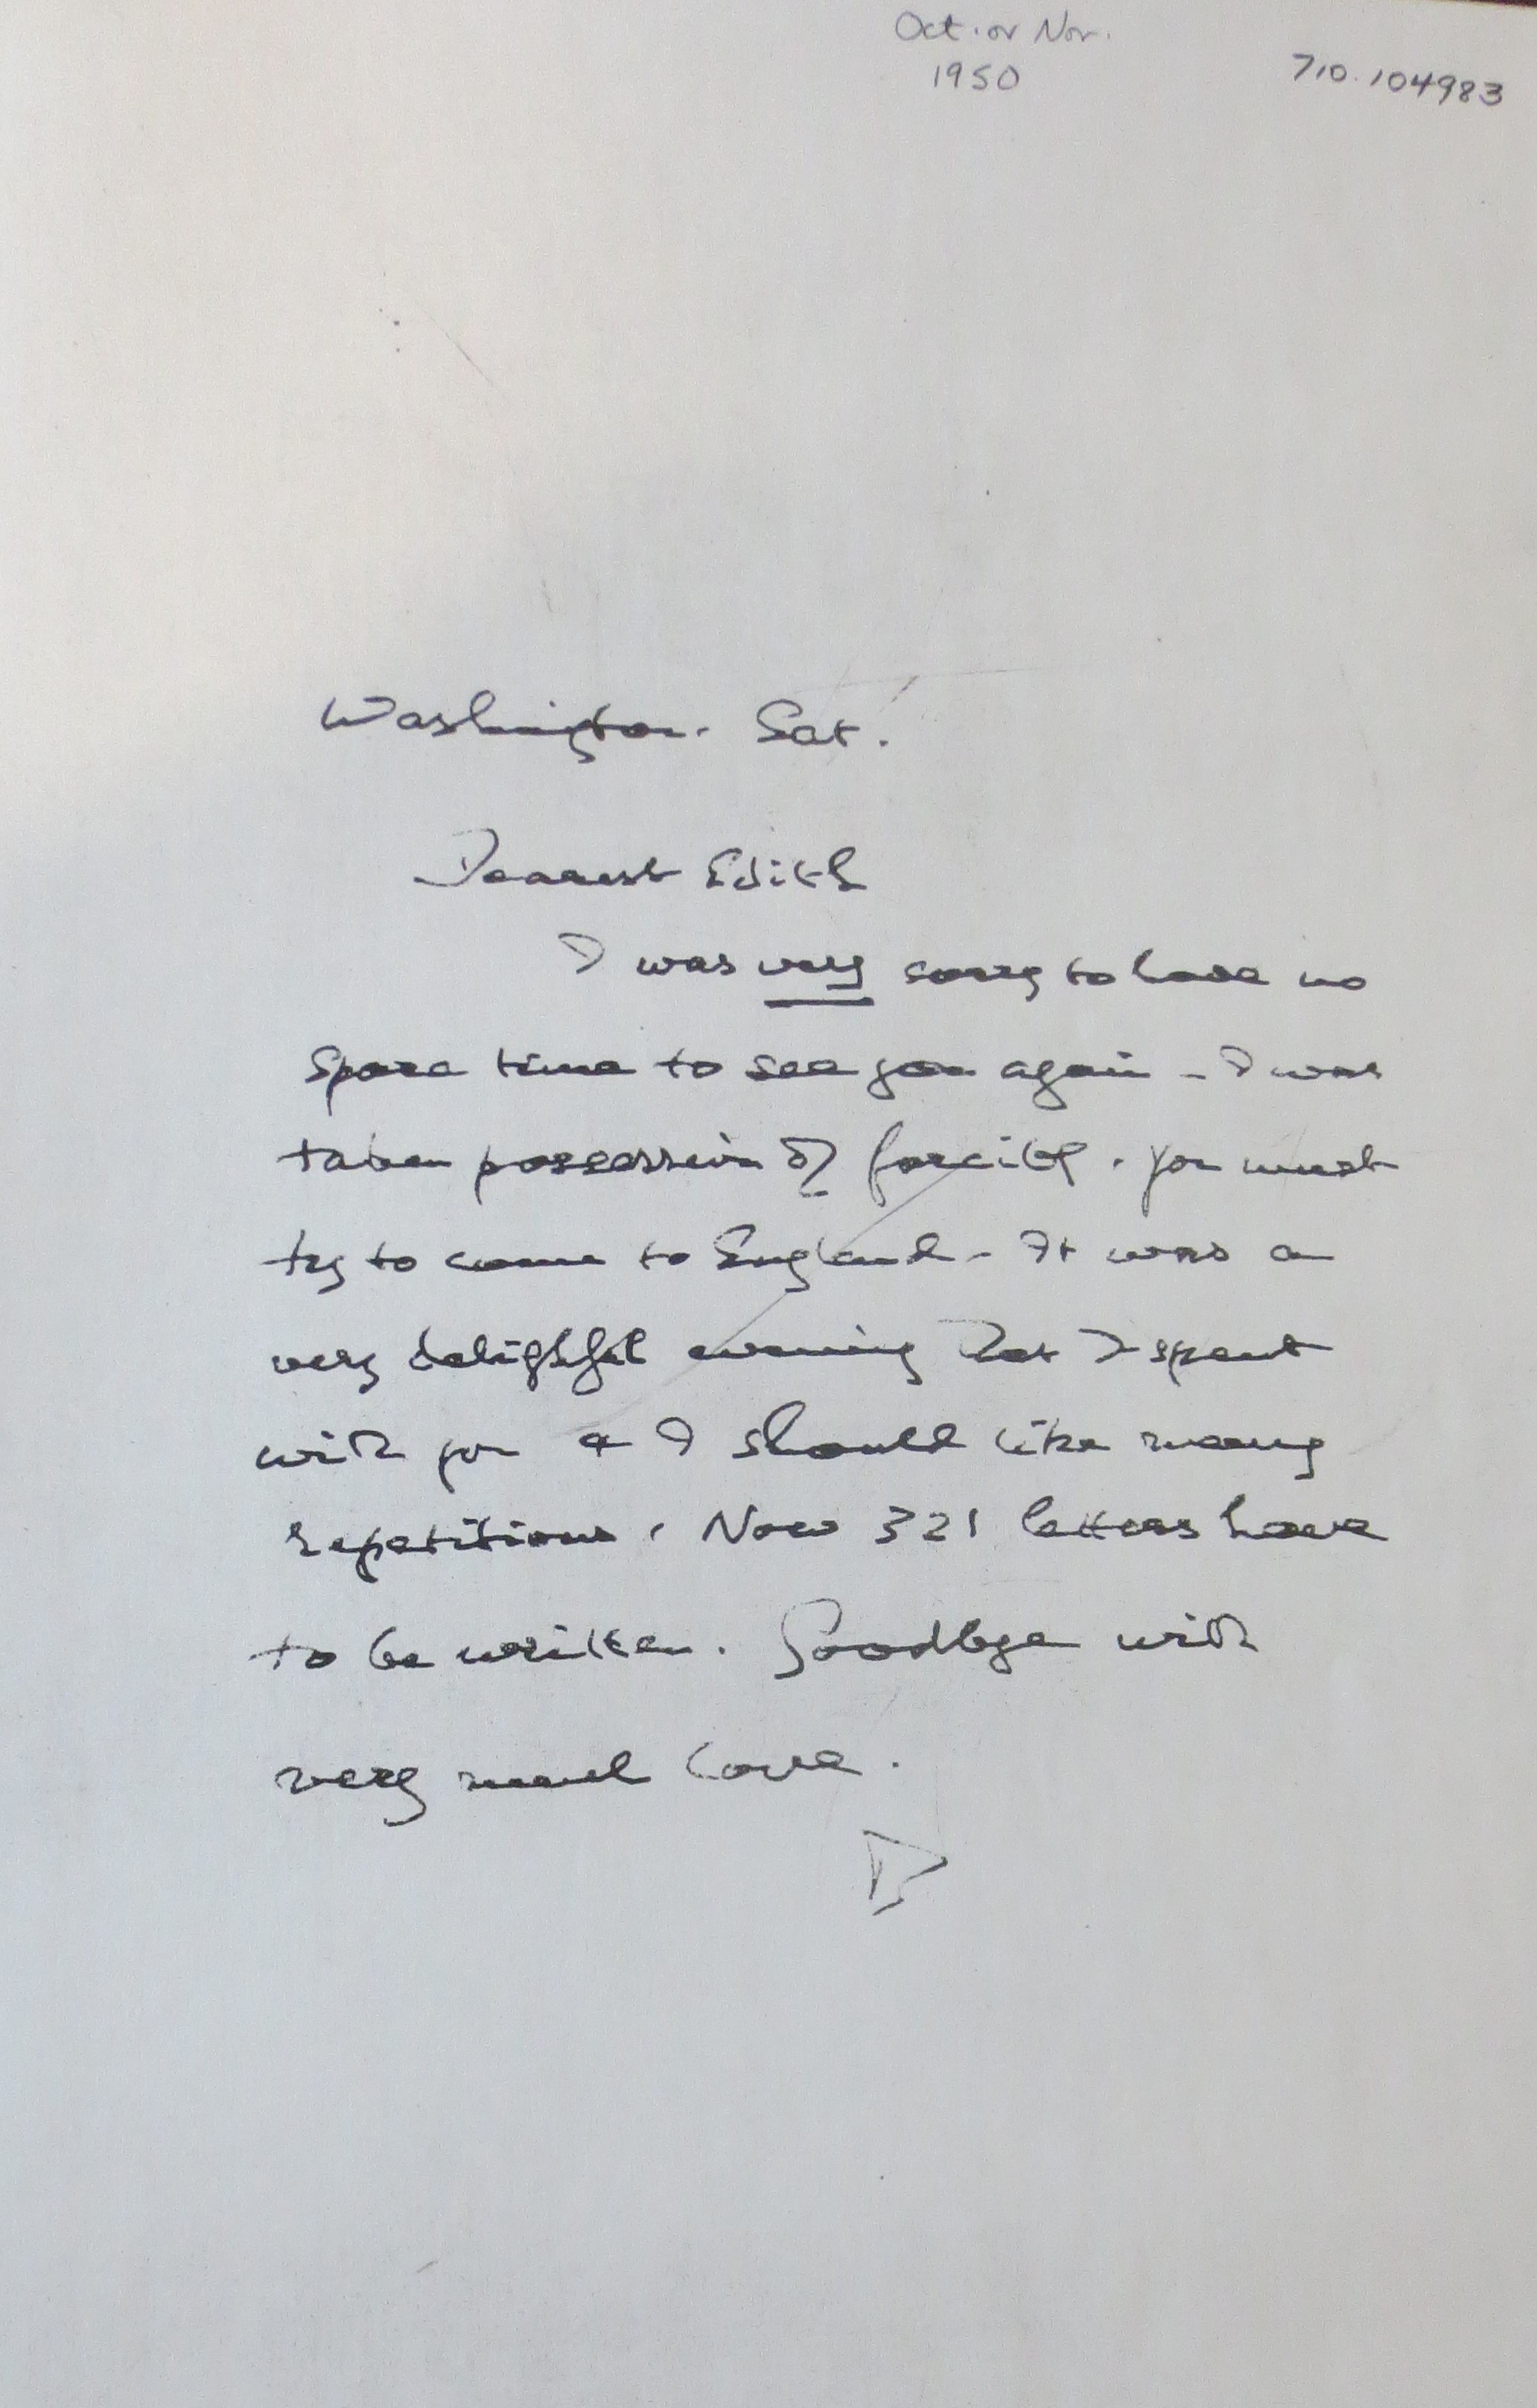 Oct. or Nov.
1950
710.104983
Washington. Sat.
Dearest Edith
I was very sorry to have no
spare time to see you again - I was
taken possession of forcibly. You must
try to come to England - It was a
very delightful evening that I spent
with you & I should like many
repetitions. Now 321 letters have
to be written. Goodbye with
very much love.